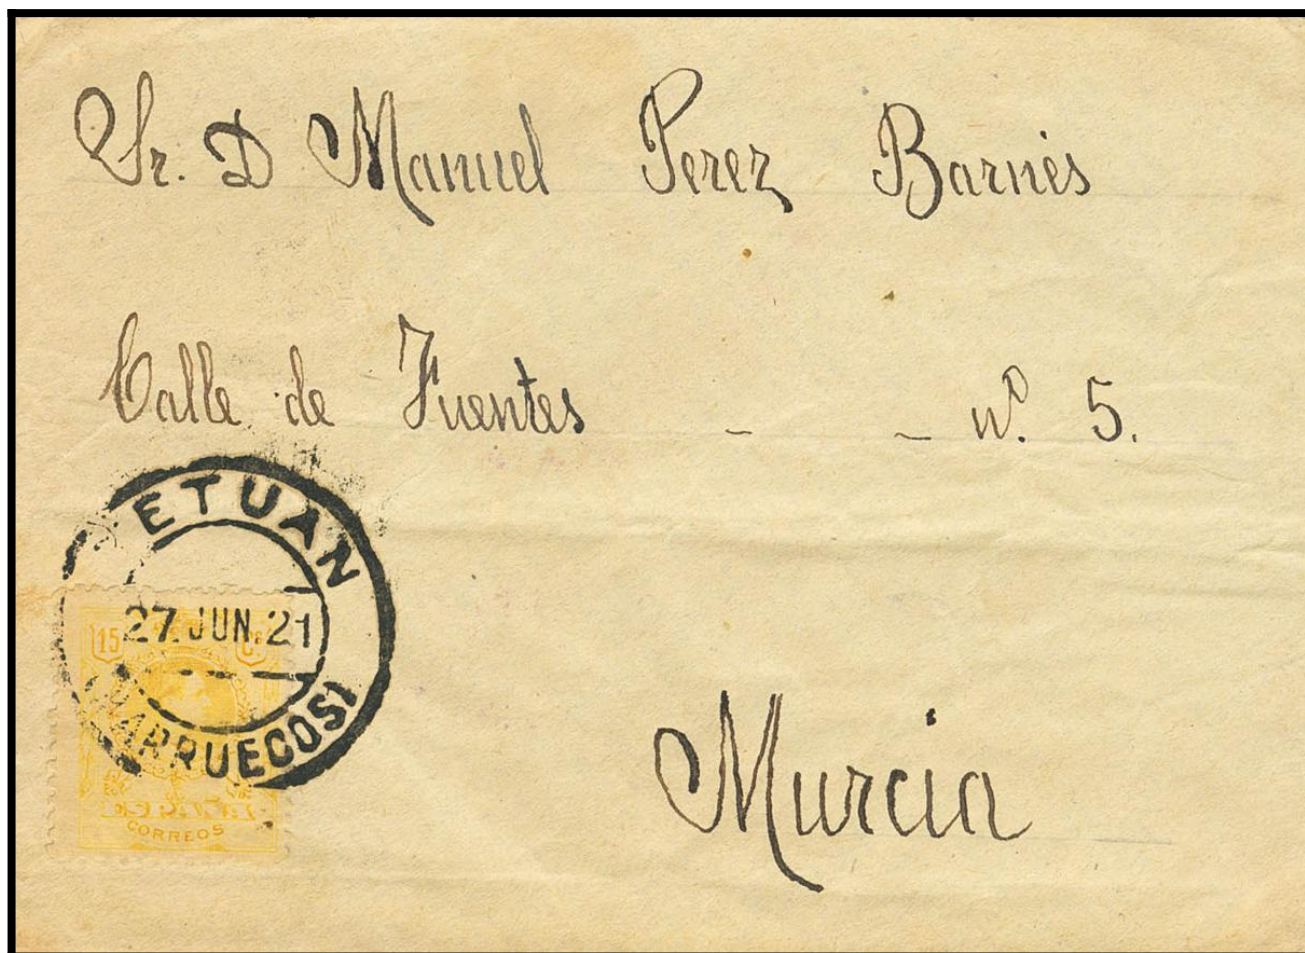 Sr. D Manuel Perez Barnés
Calle de Fuentes - - nº. 5.
ETUAN
15 Cs
27. JUN. 21
MARRUECOS)
CORREOS
Murcia